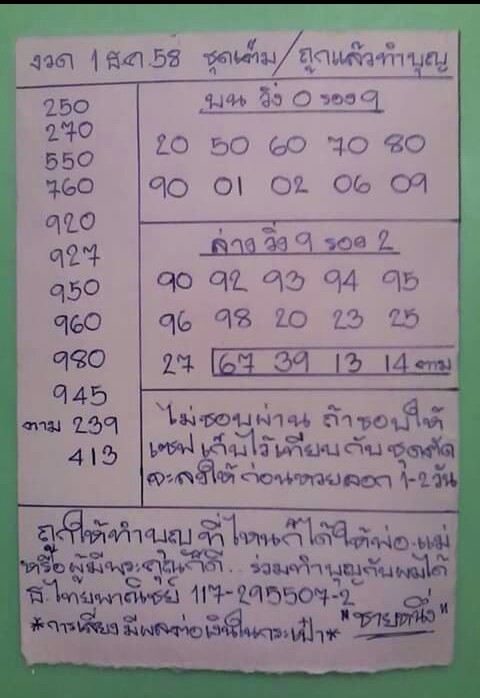 งวด 1 ธ.ค. 58 ชุดเต็ม/ถูกแล้วทำบุญ
250
270
550
760
920
927
950
960
980
945
ตาม 239
413
บน วิ่ง 0 รอง 9
20 50 60 70 80
90 01 02 06 09
ล่าง วิ่ง 9 รอง 2
90 92 93 94 95
96 98 20 23 25
27 67 39 13 14 ตาม
ไม่ชอบผ่าน ถ้าชอบให้
เซฟเก็บไว้เทียบกับชุดตัด
จะลงให้ก่อนหวยออก 1-2 วัน
ถูกให้ทำบุญที่ไหนก็ได้ให้พ่อ-แม่
หรือผู้มีพระคุณก็ดี.. ร่วมทำบุญกับผมได้
ธ.ไทยพาณิชย์ 117-295507-2
*การเสี่ยงมีผลต่อเงินในกระเป๋า* "ชายหนึ่ง"